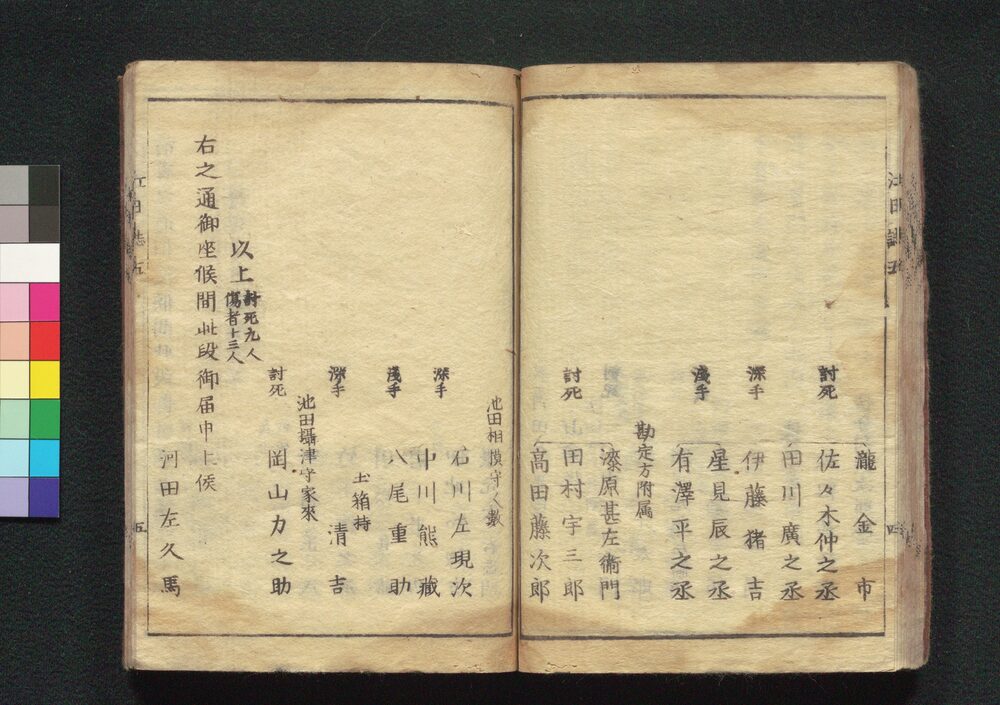 瀧金市
討死
佐々木仲之丞
田川廣之丞
深手
伊藤猪吉
浅手
星見辰之丞
有澤平之丞
勘定方附属
漆原甚左衛門
討死
田村宇三郎
高田藤次郎
四
池田相模守人數
石川左現次
深手
中川熊藏
浅手
八尾重助
玉箱持
深手
清吉
池田攝津守家來
討死
岡山力之助
以上
討死九人
傷者十三人
右之通御座候間此段御届申上候
河田左久馬
五